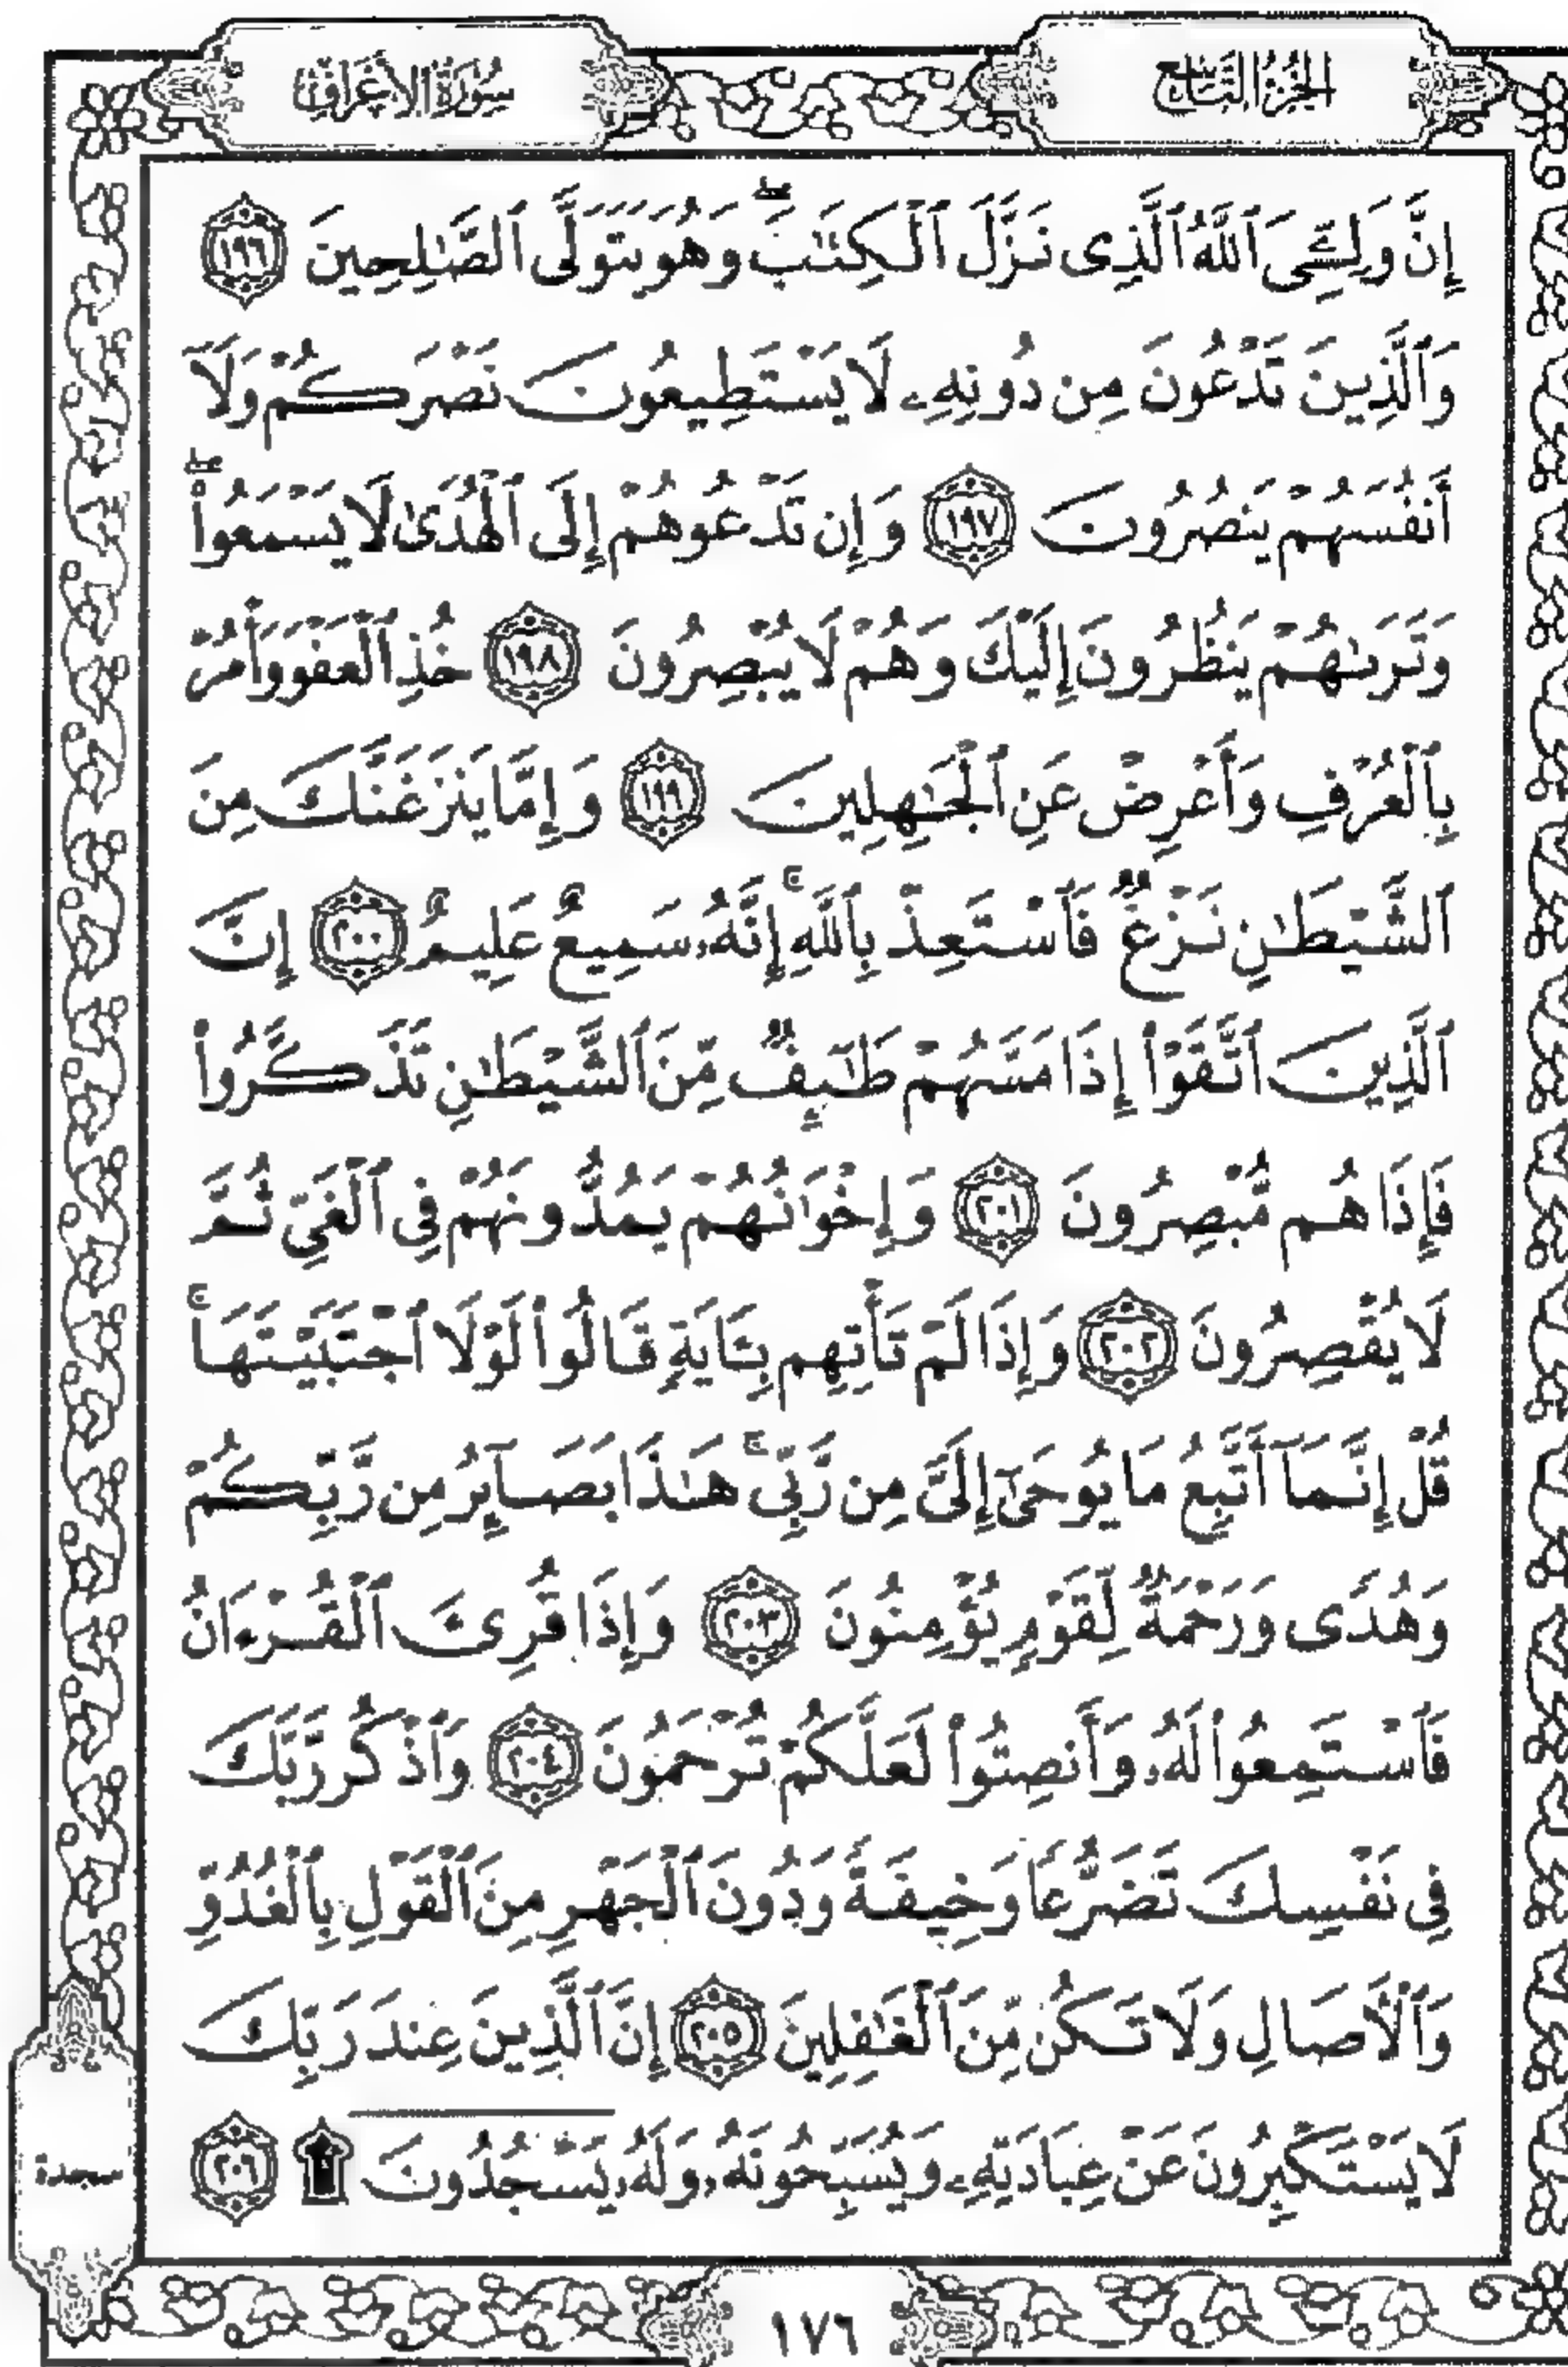 الجزء التاسع
سورة الأعراف
إِنَّ وَلِـِّۧىَ ٱللَّهُ ٱلَّذِى نَزَّلَ ٱلْكِتَـٰبَ ۖ وَهُوَ يَتَوَلَّى ٱلصَّـٰلِحِينَ ١٩٦
وَٱلَّذِينَ تَدْعُونَ مِن دُونِهِۦ لَا يَسْتَطِيعُونَ نَصْرَكُمْ وَلَآ
أَنفُسَهُمْ يَنصُرُونَ ١٩٧ وَإِن تَدْعُوهُمْ إِلَى ٱلْهُدَىٰ لَا يَسْمَعُوا۟ ۖ
وَتَرَىٰهُمْ يَنظُرُونَ إِلَيْكَ وَهُمْ لَا يُبْصِرُونَ ١٩٨ خُذِ ٱلْعَفْوَ وَأْمُرْ
بِٱلْعُرْفِ وَأَعْرِضْ عَنِ ٱلْجَـٰهِلِينَ ١٩٩ وَإِمَّا يَنزَغَنَّكَ مِنَ
ٱلشَّيْطَـٰنِ نَزْغٌ فَٱسْتَعِذْ بِٱللَّهِ ۚ إِنَّهُۥ سَمِيعٌ عَلِيمٌ ٢٠٠ إِنَّ
ٱلَّذِينَ ٱتَّقَوْا۟ إِذَا مَسَّهُمْ طَـٰٓئِفٌ مِّنَ ٱلشَّيْطَـٰنِ تَذَكَّرُوا۟
فَإِذَا هُم مُّبْصِرُونَ ٢٠١ وَإِخْوَٰنُهُمْ يَمُدُّونَهُمْ فِى ٱلْغَىِّ ثُمَّ
لَا يُقْصِرُونَ ٢٠٢ وَإِذَا لَمْ تَأْتِهِم بِـَٔايَةٍ قَالُوا۟ لَوْلَا ٱجْتَبَيْتَهَا ۚ
قُلْ إِنَّمَآ أَتَّبِعُ مَا يُوحَىٰٓ إِلَىَّ مِن رَّبِّى ۚ هَـٰذَا بَصَآئِرُ مِن رَّبِّكُمْ
وَهُدًى وَرَحْمَةٌ لِّقَوْمٍ يُؤْمِنُونَ ٢٠٣ وَإِذَا قُرِئَ ٱلْقُرْءَانُ
فَٱسْتَمِعُوا۟ لَهُۥ وَأَنصِتُوا۟ لَعَلَّكُمْ تُرْحَمُونَ ٢٠٤ وَٱذْكُر رَّبَّكَ
فِى نَفْسِكَ تَضَرُّعًا وَخِيفَةً وَدُونَ ٱلْجَهْرِ مِنَ ٱلْقَوْلِ بِٱلْغُدُوِّ
وَٱلْـَٔاصَالِ وَلَا تَكُن مِّنَ ٱلْغَـٰفِلِينَ ٢٠٥ إِنَّ ٱلَّذِينَ عِندَ رَبِّكَ
لَا يَسْتَكْبِرُونَ عَنْ عِبَادَتِهِۦ وَيُسَبِّحُونَهُۥ وَلَهُۥ يَسْجُدُونَ ۩ ٢٠٦
سجدة
١٧٦